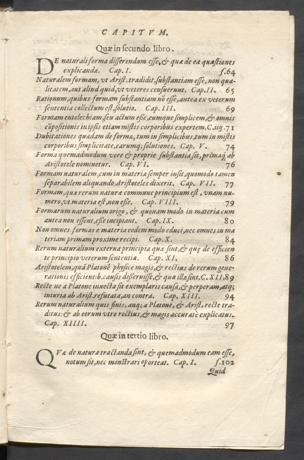 CAPITVM.
Quæ in secundo libro.
DE naturali forma disserendum esse, & quæ de ea quæstiones
explicandæ. Cap. I. f.64
Naturalem formam, vt Arist. tradidit, substantiam esse, non qua-
litatem, aut aliud quid, vt veteres censuerunt. Cap. II. 65
Rationum, quibus formam substantiam nō esse, antea ex veterum
sententia collectum est, solutio. Cap. III. 69
Formam entelechiam, seu actum esse, eumque simplicem, & omnis
cōpositionis in ipsis etiam mistis corporibus expertem. C. IIII. 71
Dubitationes quædam de forma, tum in simplicibus, tum in mistis
corporibus simplicitate, earumq; solutiones. Cap. V. 74
Forma quemadmodum vere & proprie substantia sit, primaq; ab
Aristotele nominetur. Cap. VI. 76
Formam naturalem, cum in materia semper insit, quomodo tamen
separabilem aliquando, Aristoteles dixerit. Cap. VII. 77
Formam, quæ rerum natura commune principium est, vnam nu-
mero, vt materia est, non esse. Cap. VIII. 79
Formarum naturalium origo, & quonam modo in materia eum
antea non essent, esse incipiant. Cap. IX. 80
Non omneis formas e materia eodem modo educi, nec omneis in ma
teriam primam proxime recipi. Cap. X. 84
Rerum naturalium externa principia quæ sint, & quæ de efficien
te principio veterum sententia. Cap. XI. 86
Aristotelem, quā Platonē physice magis & rectius de rerum gene-
rationis efficientib. causis disseruisse, & quæ illæ sint. C. XII. 89
Recte ne a Platone inuecta sit exemplaris causa, & perperam, atq;
iniuria ab Arist. refutata, an contra. Cap. XIII. 94
Rerum naturalium quis finis, anq; a Platone, & Arist. recte tra-
ditus: & ab eorum vtro rectius, & magis accurate explicatus.
Cap. XIIII. 97
Quæ in tertio libro.
QVæ de natura tractanda sint, & quemadmodum eam esse,
notum sit, nec monstrari oporteat. Cap. I. f.102
Quid